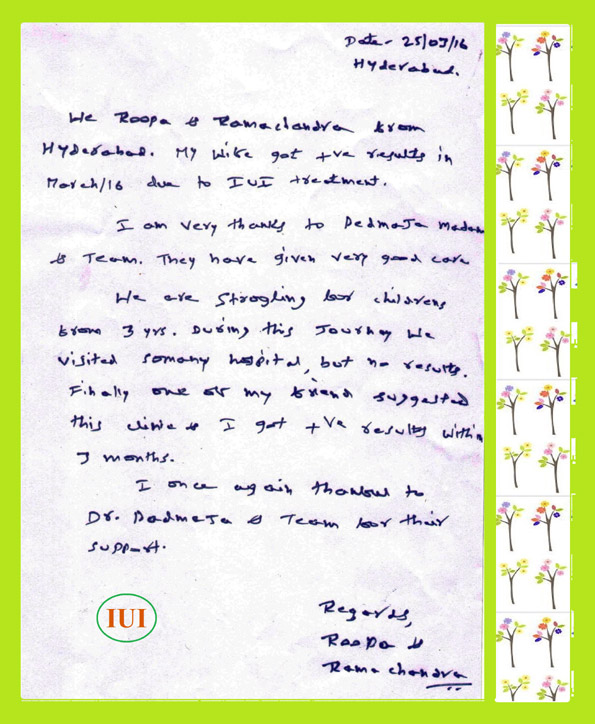 Date- 25/03/16
Hyderabad.
We Roopa & Ramachandra from
Hyderabad. My wife got +ve results in
March/16 due to IUI treatment.
I am very thanks to Pedmaja madam
& Team. They have given very good care
We are Strogling for childrens
from 3 yrs. During this Journey We
visited somany hospital, but no results.
Finally one of my friend suggested
this clinic & I got +ve results within
3 months.
I once again thankful to
Dr. Padmaja & Team for their
support.
IUI
Regards,
Roopa &
Rama chandra